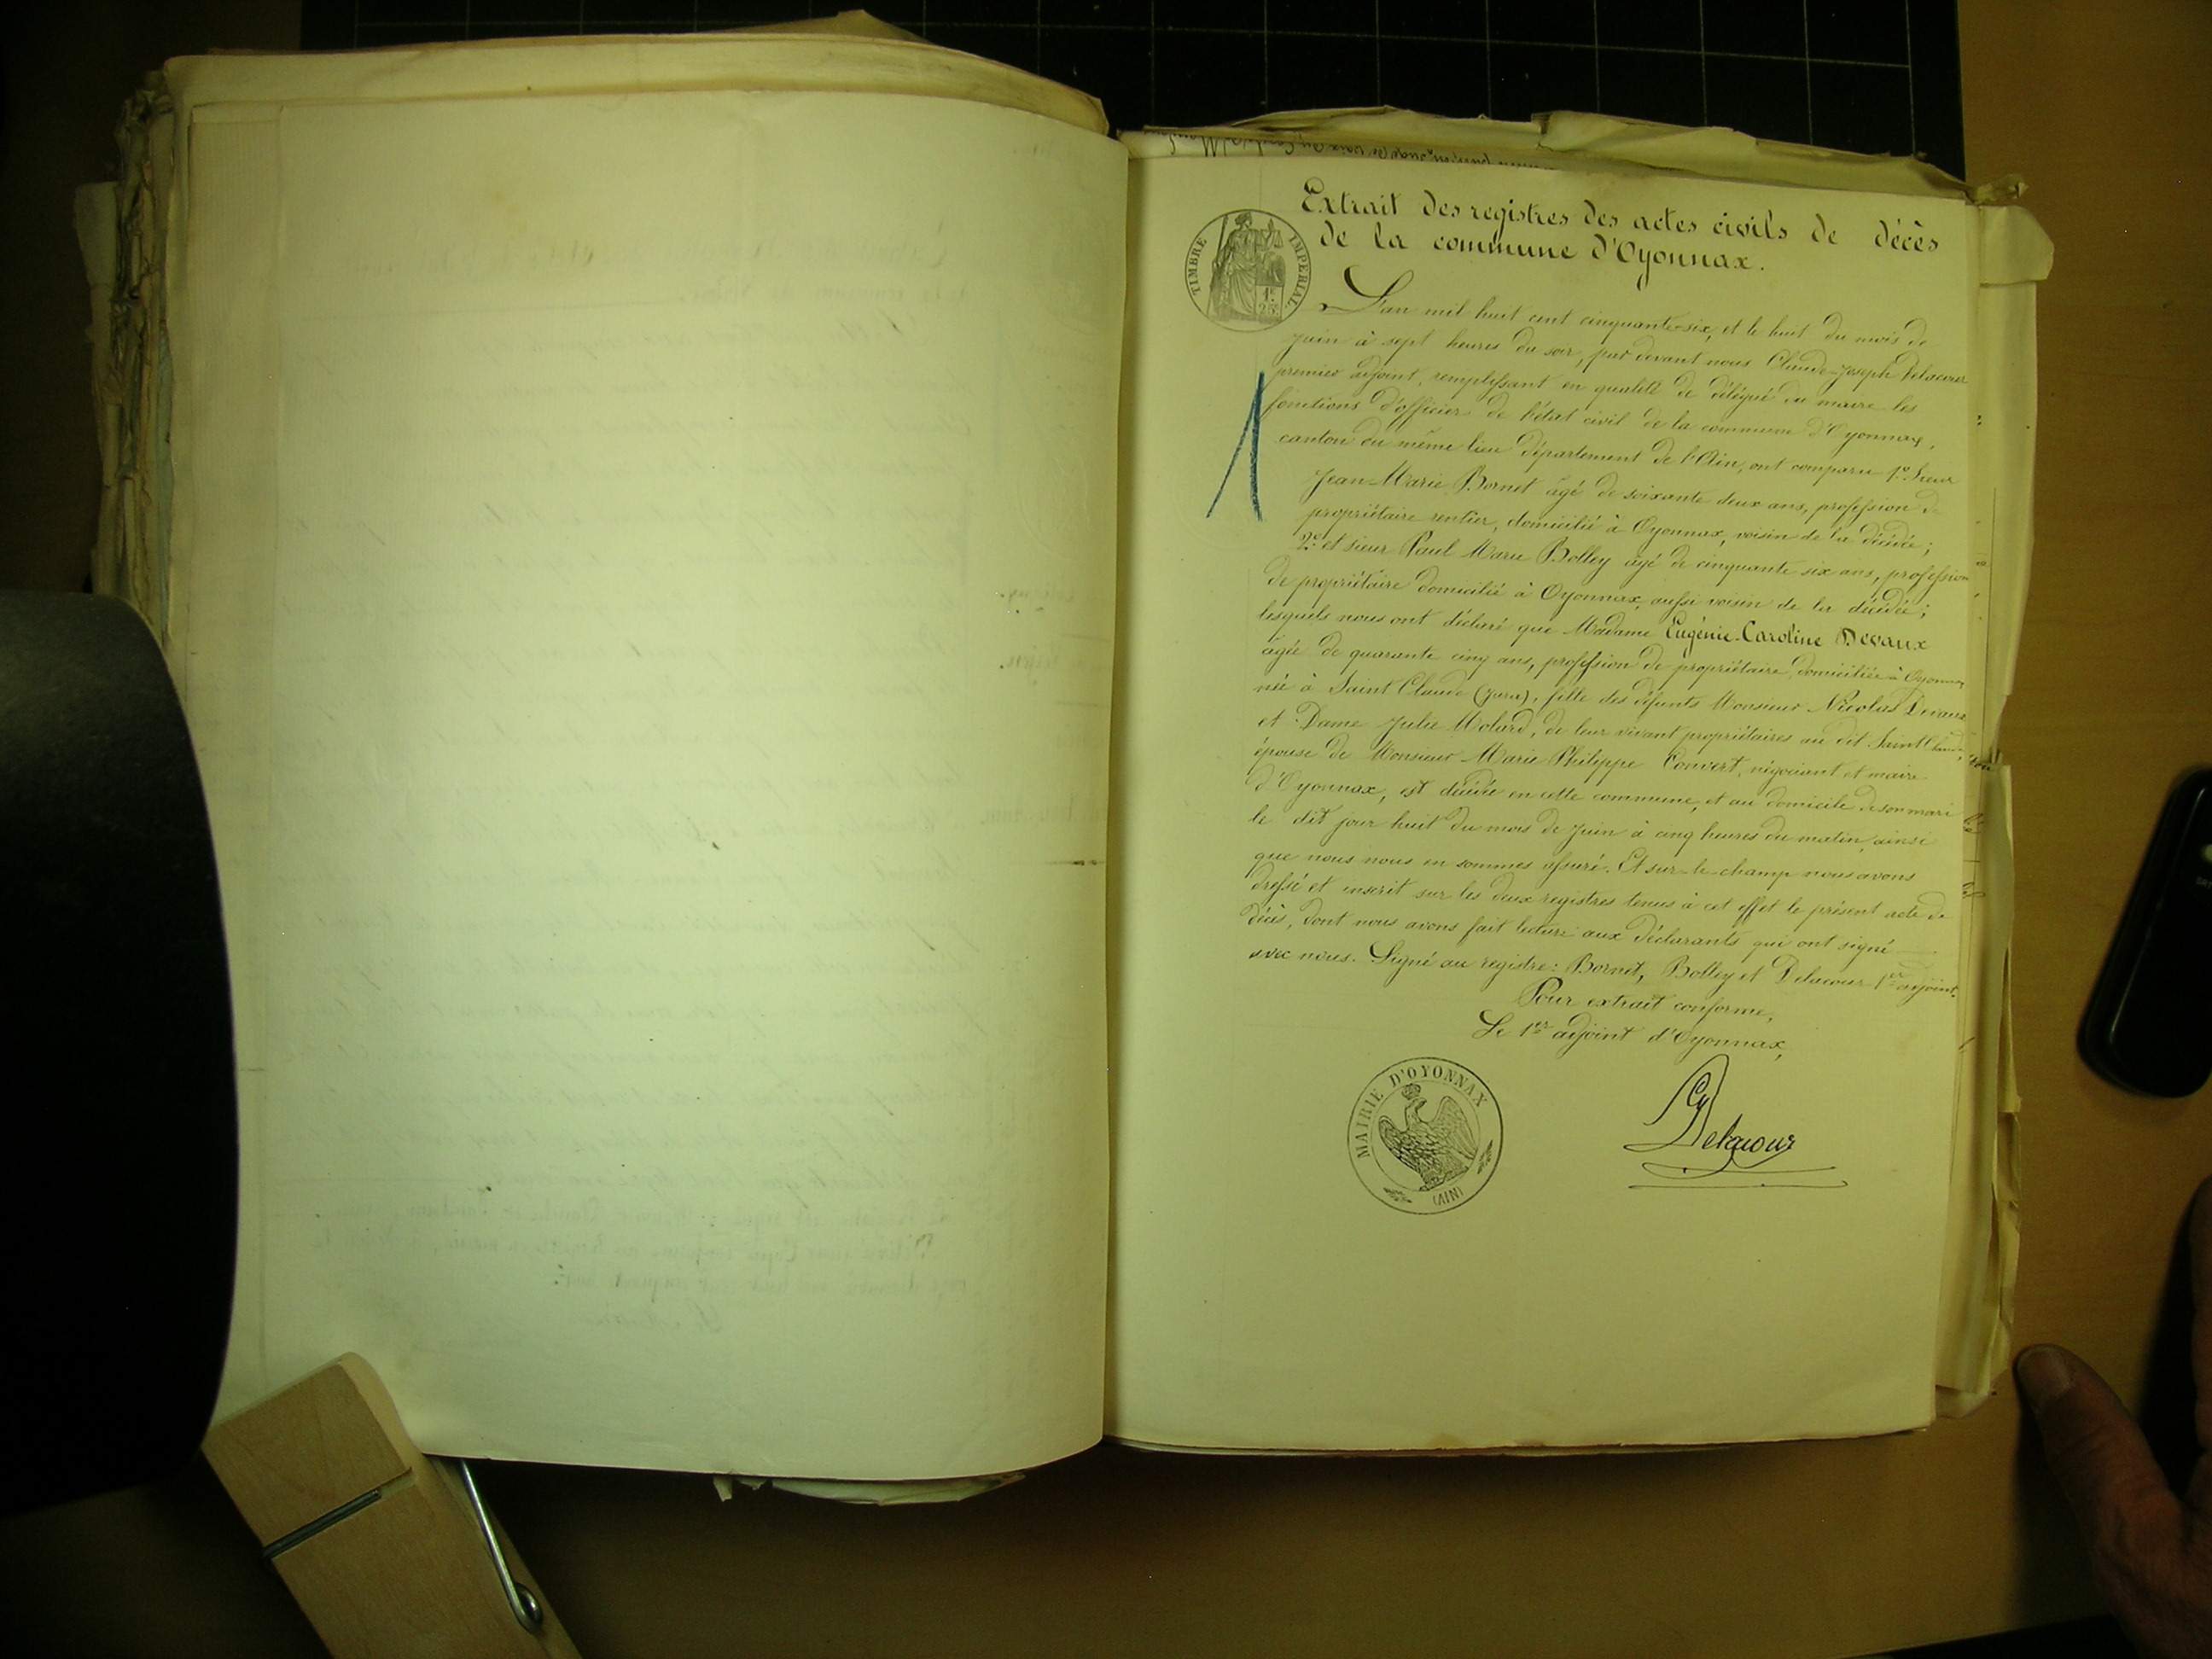 Extrait des registres des actes civils de décès
de la commune d'Oyonnax.
TIMBRE IMPÉRIAL
1f
25
L'an mil huit cent cinquante-six, et le huit du mois de
juin à sept heures du soir, par devant nous Claude-Joseph Delacour
premier adjoint, remplissant en qualité de délégué du maire les
fonctions d'officier de l'état civil de la commune d'Oyonnax,
canton du même lieu département de l'Ain, ont comparu 1º Sieur
Jean-Marie Bornet âgé de soixante deux ans, profession de
propriétaire rentier, domicilié à Oyonnax, voisin de la décédée;
2º et sieur Paul Marie Bolley âgé de cinquante six ans, profession
de propriétaire domicilié à Oyonnax, aussi voisin de la décédée;
lesquels nous ont déclaré que Madame Eugénie-Caroline Devaux
âgée de quarante cinq ans, profession de propriétaire, domiciliée à Oyonnax
née à Saint Claude (Jura), fille des défunts Monsieur Nicolas Devaux
et Dame Julie Molard, de leur vivant propriétaires au dit Saint Claude,
épouse de Monsieur Marie Philippe Convert, négociant et maire
d'Oyonnax, est décédée en cette commune, et au domicile de son mari
le dit jour huit du mois de juin à cinq heures du matin, ainsi
que nous nous en sommes assuré. Et sur-le-champ nous avons
dressé et inscrit sur les deux registres tenus à cet effet le présent acte de
décès, dont nous avons fait lecture aux déclarants qui ont signé
avec nous. Signé au registre: Bornet, Bolley et Delacour 1er adjoint.
Pour extrait conforme,
Le 1er adjoint d'Oyonnax,
MAIRIE D'OYONNAX
(AIN)
Delacour